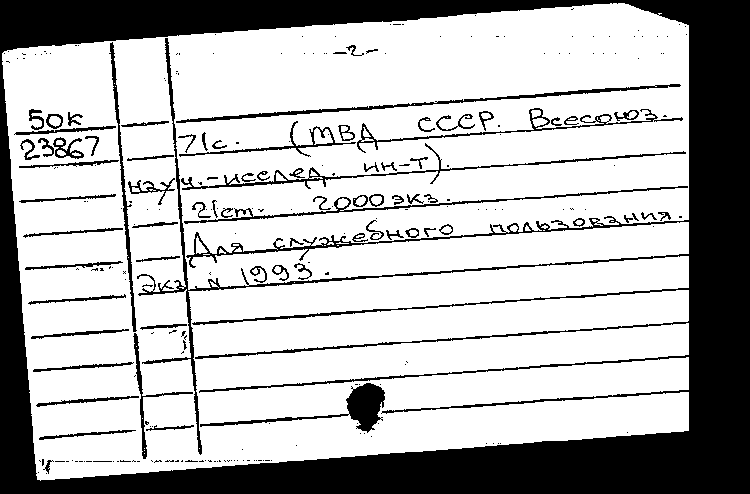 -2-
50к
23867
71с. (МВД СССР. Всесоюз.
науч.-исслед. ин-т).
21cm. 2000экз.
Для служебного пользования.
Экз. N 1993.